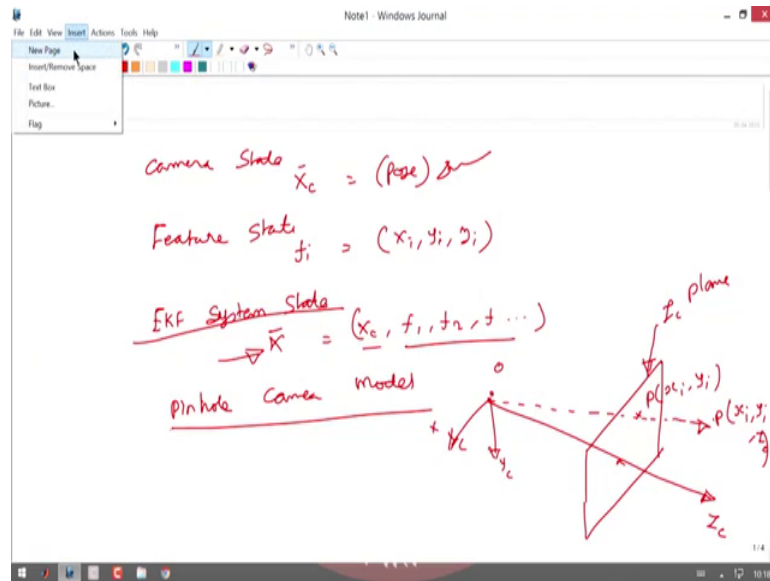 Note1 - Windows Journal
File Edit View Insert Actions Tools Help
New Page
Insert/Remove Space
Text Box
Picture...
Flag
Camera State X̄c = (Pose)
Feature State fi = (xi, yi, zi)
EKF System State
X̄ = (xc, f1, f2, f ...)
Pinhole Camera Model
Ic plane
O
P(xi, yi)
P(xi, yi, zi)
Xc
Yc
Zc
1/4
10:18